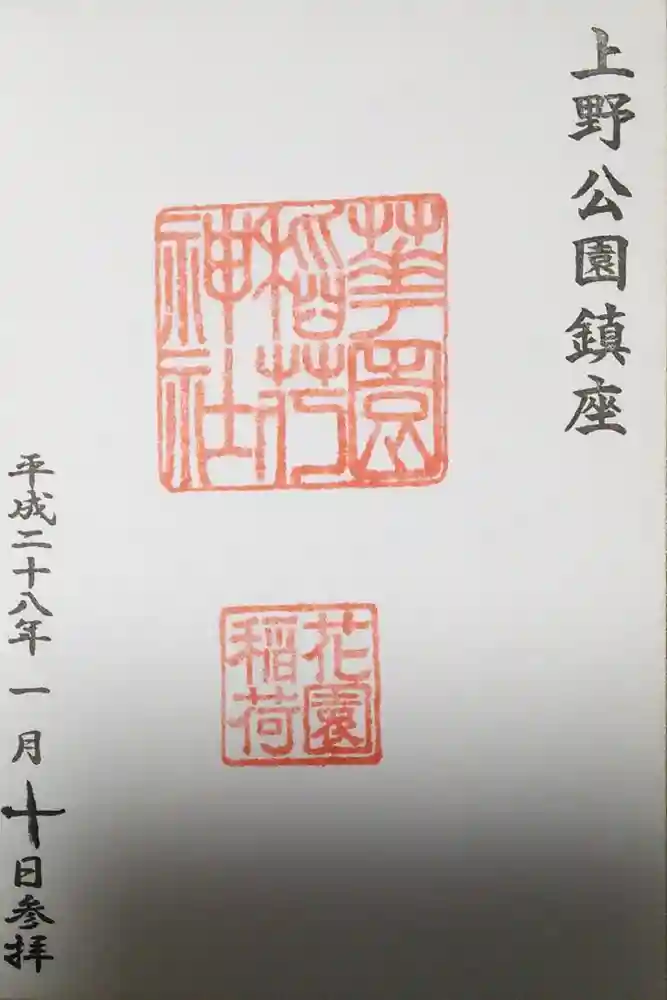 上野公園鎮座
華園
稲荷
神社
花園
稲荷
平成二十八年一月十日参拝